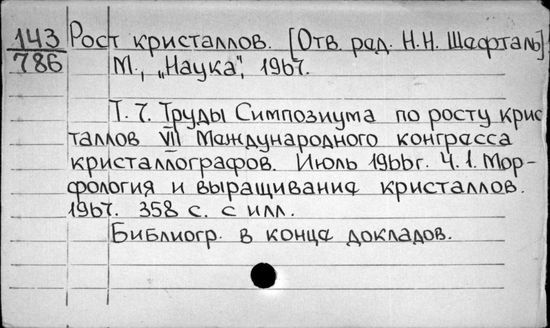 143 Рост кристаллов. [Отв. ред. Н.Н. Шефталь]
786 М., „Наука", 1967.
Т. 7. Труды Симпозиума по росту крис
таллов VII Международного конгресса
кристаллографов. Июль 1966г. Ч. 1. Мор-
фология и выращивание кристаллов.
1967. 358 с. с илл.
Библиогр. в конце докладов.